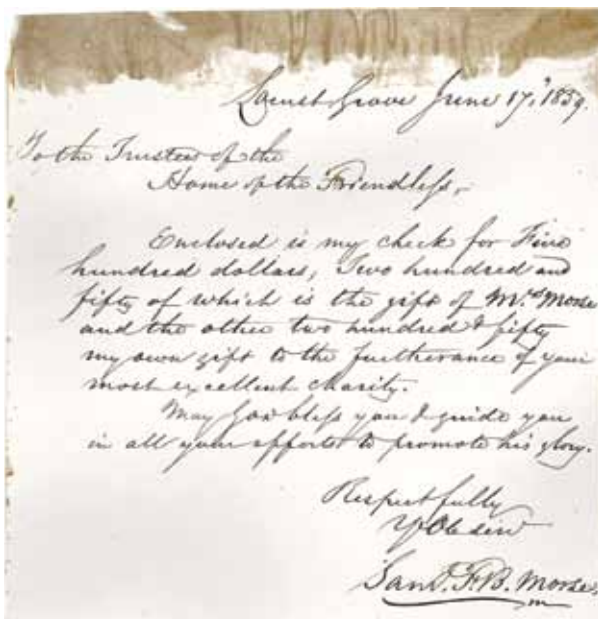 Locust Grove June 17, 1859.
To the Trustees of the
Home of the Friendless,
Enclosed is my check for Five
hundred dollars, Two hundred and
fifty of which is the gift of Mrs Morse
and the other two hundred & fifty
my own gift to the furtherance of your
most excellent charity.
May God bless you & guide you
in all your efforts to promote his glory.
Respectfully
Yr Ob serv
Saml. F. B. Morse.